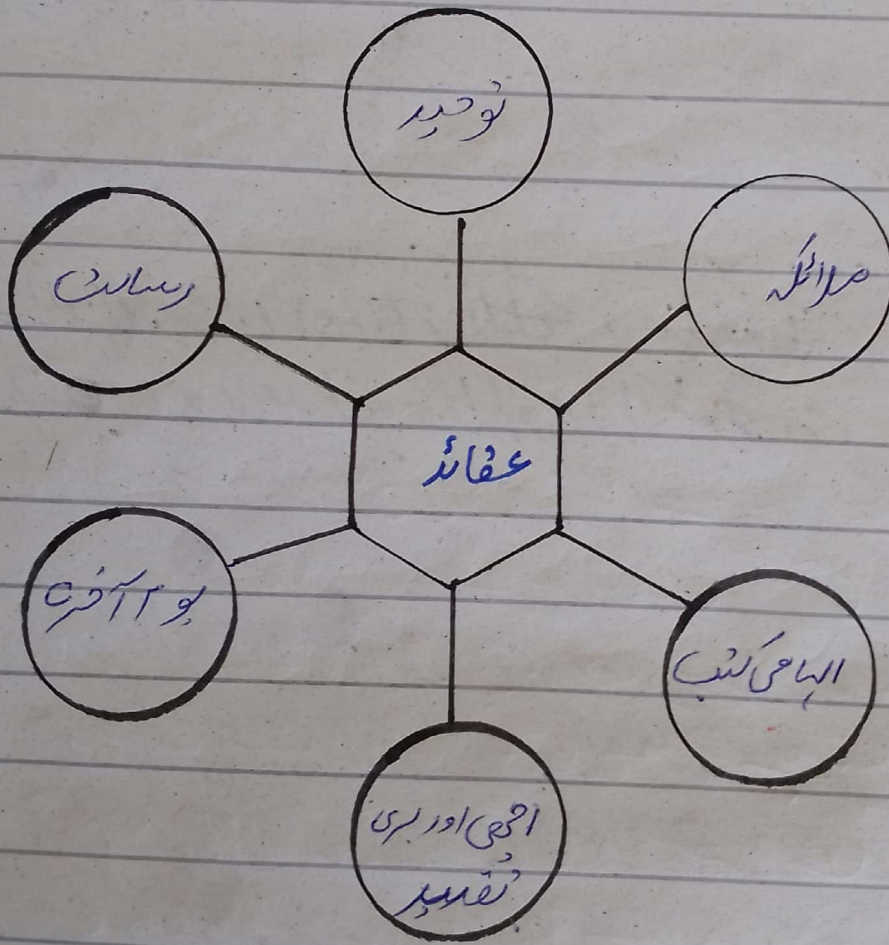 توحید
ملائکہ
رسالت
عقائد
یوم آخرت
الہامی کتب
اچھی اور بری
تقدیر